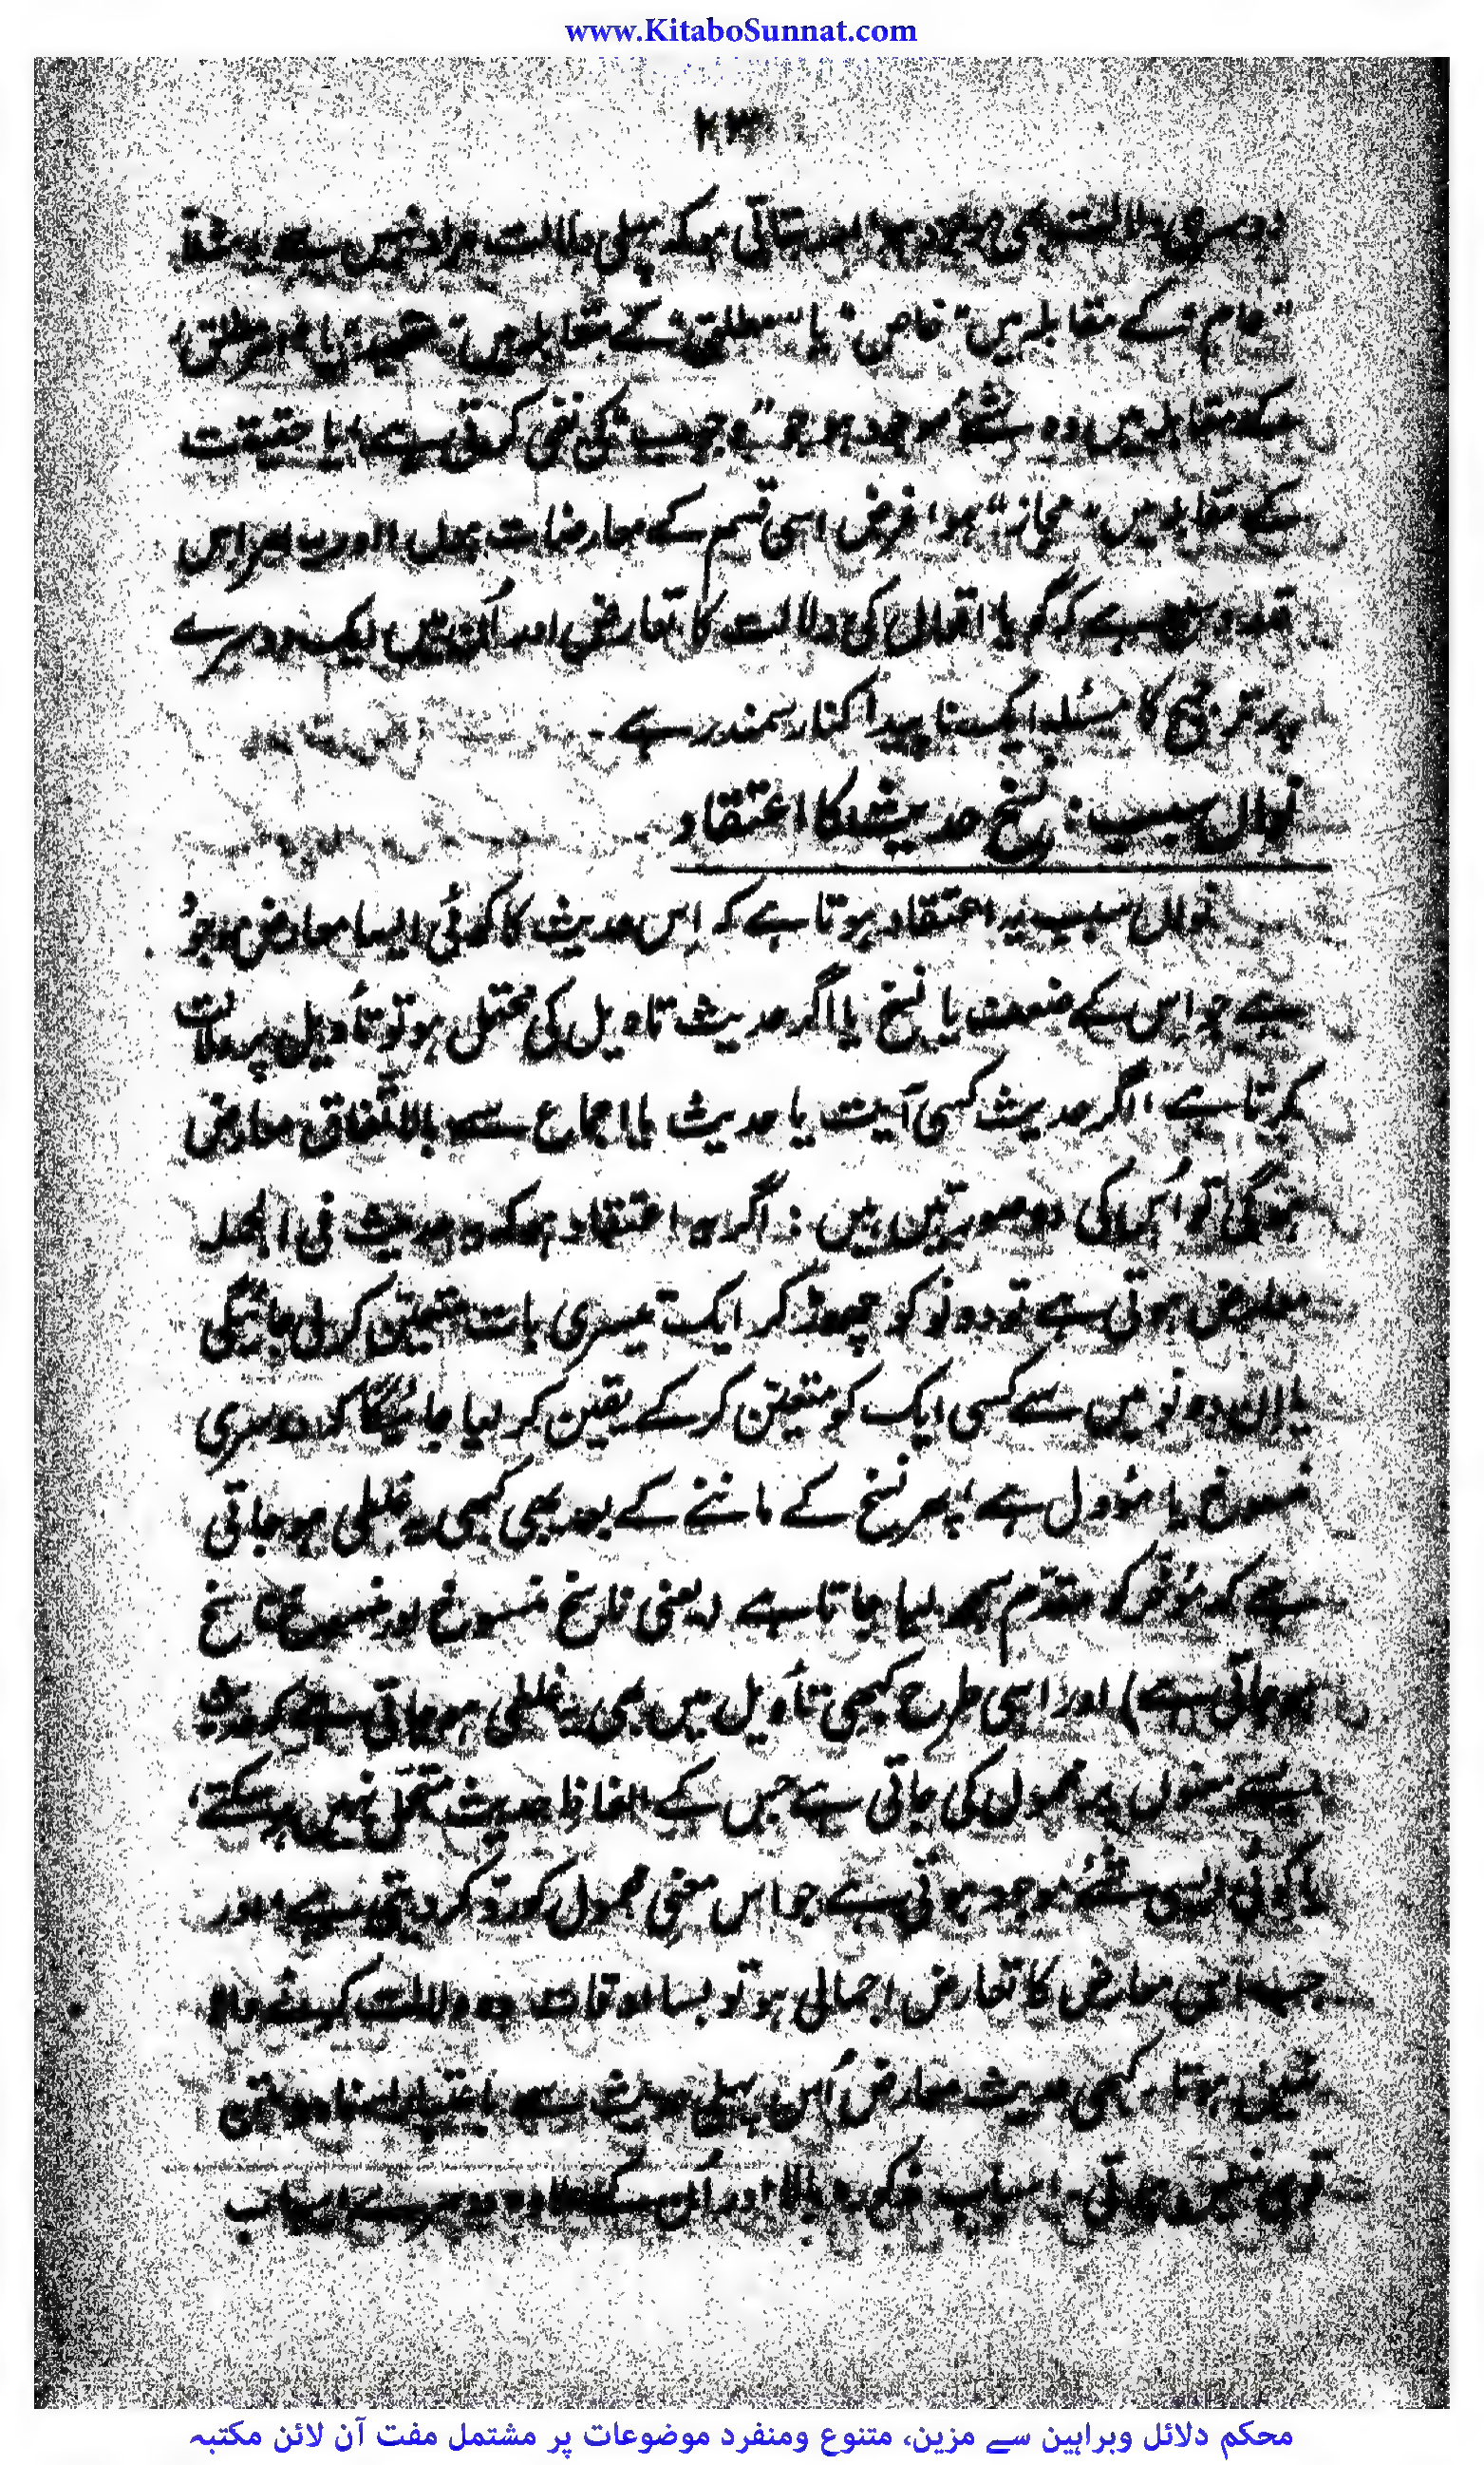 www.KitaboSunnat.com
۲۳
دوسری دلالت بھی موجود ہو اور بتاتی ہو کہ پہلی دلالت مراد نہیں ہے، مثلاً
"عام" کے مقابلہ میں "خاص" یا "مطلق" کے مقابلہ میں "مقید" یا "امر مطلق"
کے مقابلہ میں وہ شئے موجود ہو جو "وجوب" کی نفی کرتی ہے، یا حقیقت
کے مقابلہ میں "مجاز" ہو، غرض اسی قسم کے معارضات ہوں اور یہ امر اس
قدر وسیع ہے کہ گویا اقوال کی دلالت کا تعارض اور اُن میں ایک دوسرے
پر ترجیح کا مسئلہ ایک ناپیدا کنار سمندر ہے۔
نواں سبب: نسخِ حدیث کا اعتقاد
نواں سبب یہ اعتقاد ہوتا ہے کہ اِس حدیث کا کوئی ایسا معارض موجود
ہے جو اِس کے ضعف یا نسخ یا اگر حدیث تاویل کی محتمل ہو تو تأویل پر دلالت
کرتا ہے، اگر حدیث کسی آیت یا حدیث یا اجماع سے بالاتفاق معارض
ہوگی تو اُس کی دو صورتیں ہیں: اگر یہ اعتقاد ہو کہ وہ حدیث فی الجملہ
معارض ہوتی ہے تو دونو کو چھوڑ کر ایک تیسری بات متعین کر لی جائیگی
یا اِن دونو میں سے کسی ایک کو متعین کر کے یقین کر لیا جائیگا کہ دوسری
منسوخ یا مؤول ہے، پھر نسخ کے ماننے کے بعد بھی کبھی یہ غلطی ہو جاتی
ہے کہ مؤخر کو مقدّم سمجھ لیا جاتا ہے (یعنی ناسخ منسوخ اور منسوخ ناسخ
ہو جاتی ہے) اور اسی طرح کبھی تأویل میں بھی یہ غلطی ہو جاتی ہے کہ حدیث
ایسے معنوں پر محمول کی جاتی ہے جس کے الفاظِ حدیث متحمّل نہیں ہو سکتے،
یا کوئی ایسی شئے موجود ہوتی ہے جو اس معنی محمول کو رد کر دیتی ہے، اور
جب اسی معارض کا تعارض اجمالی ہو تو بسا اوقات وہ دلالت کرنے والا
نہیں ہوتا، کبھی حدیث معارض اُس پہلی حدیث سے باعتبار اسناد و متن
قوی نہیں ہوتی۔ اسبابِ مذکورہ بالا اور اُن کے علاوہ دوسرے اسباب
محکم دلائل وبراہین سے مزین، متنوع ومنفرد موضوعات پر مشتمل مفت آن لائن مکتبہ